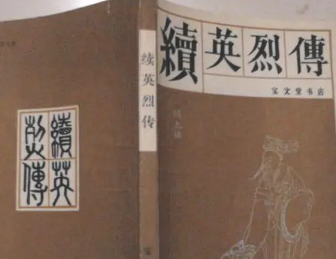 續英烈傳
宝文堂书店
续英烈传
續英
烈傳